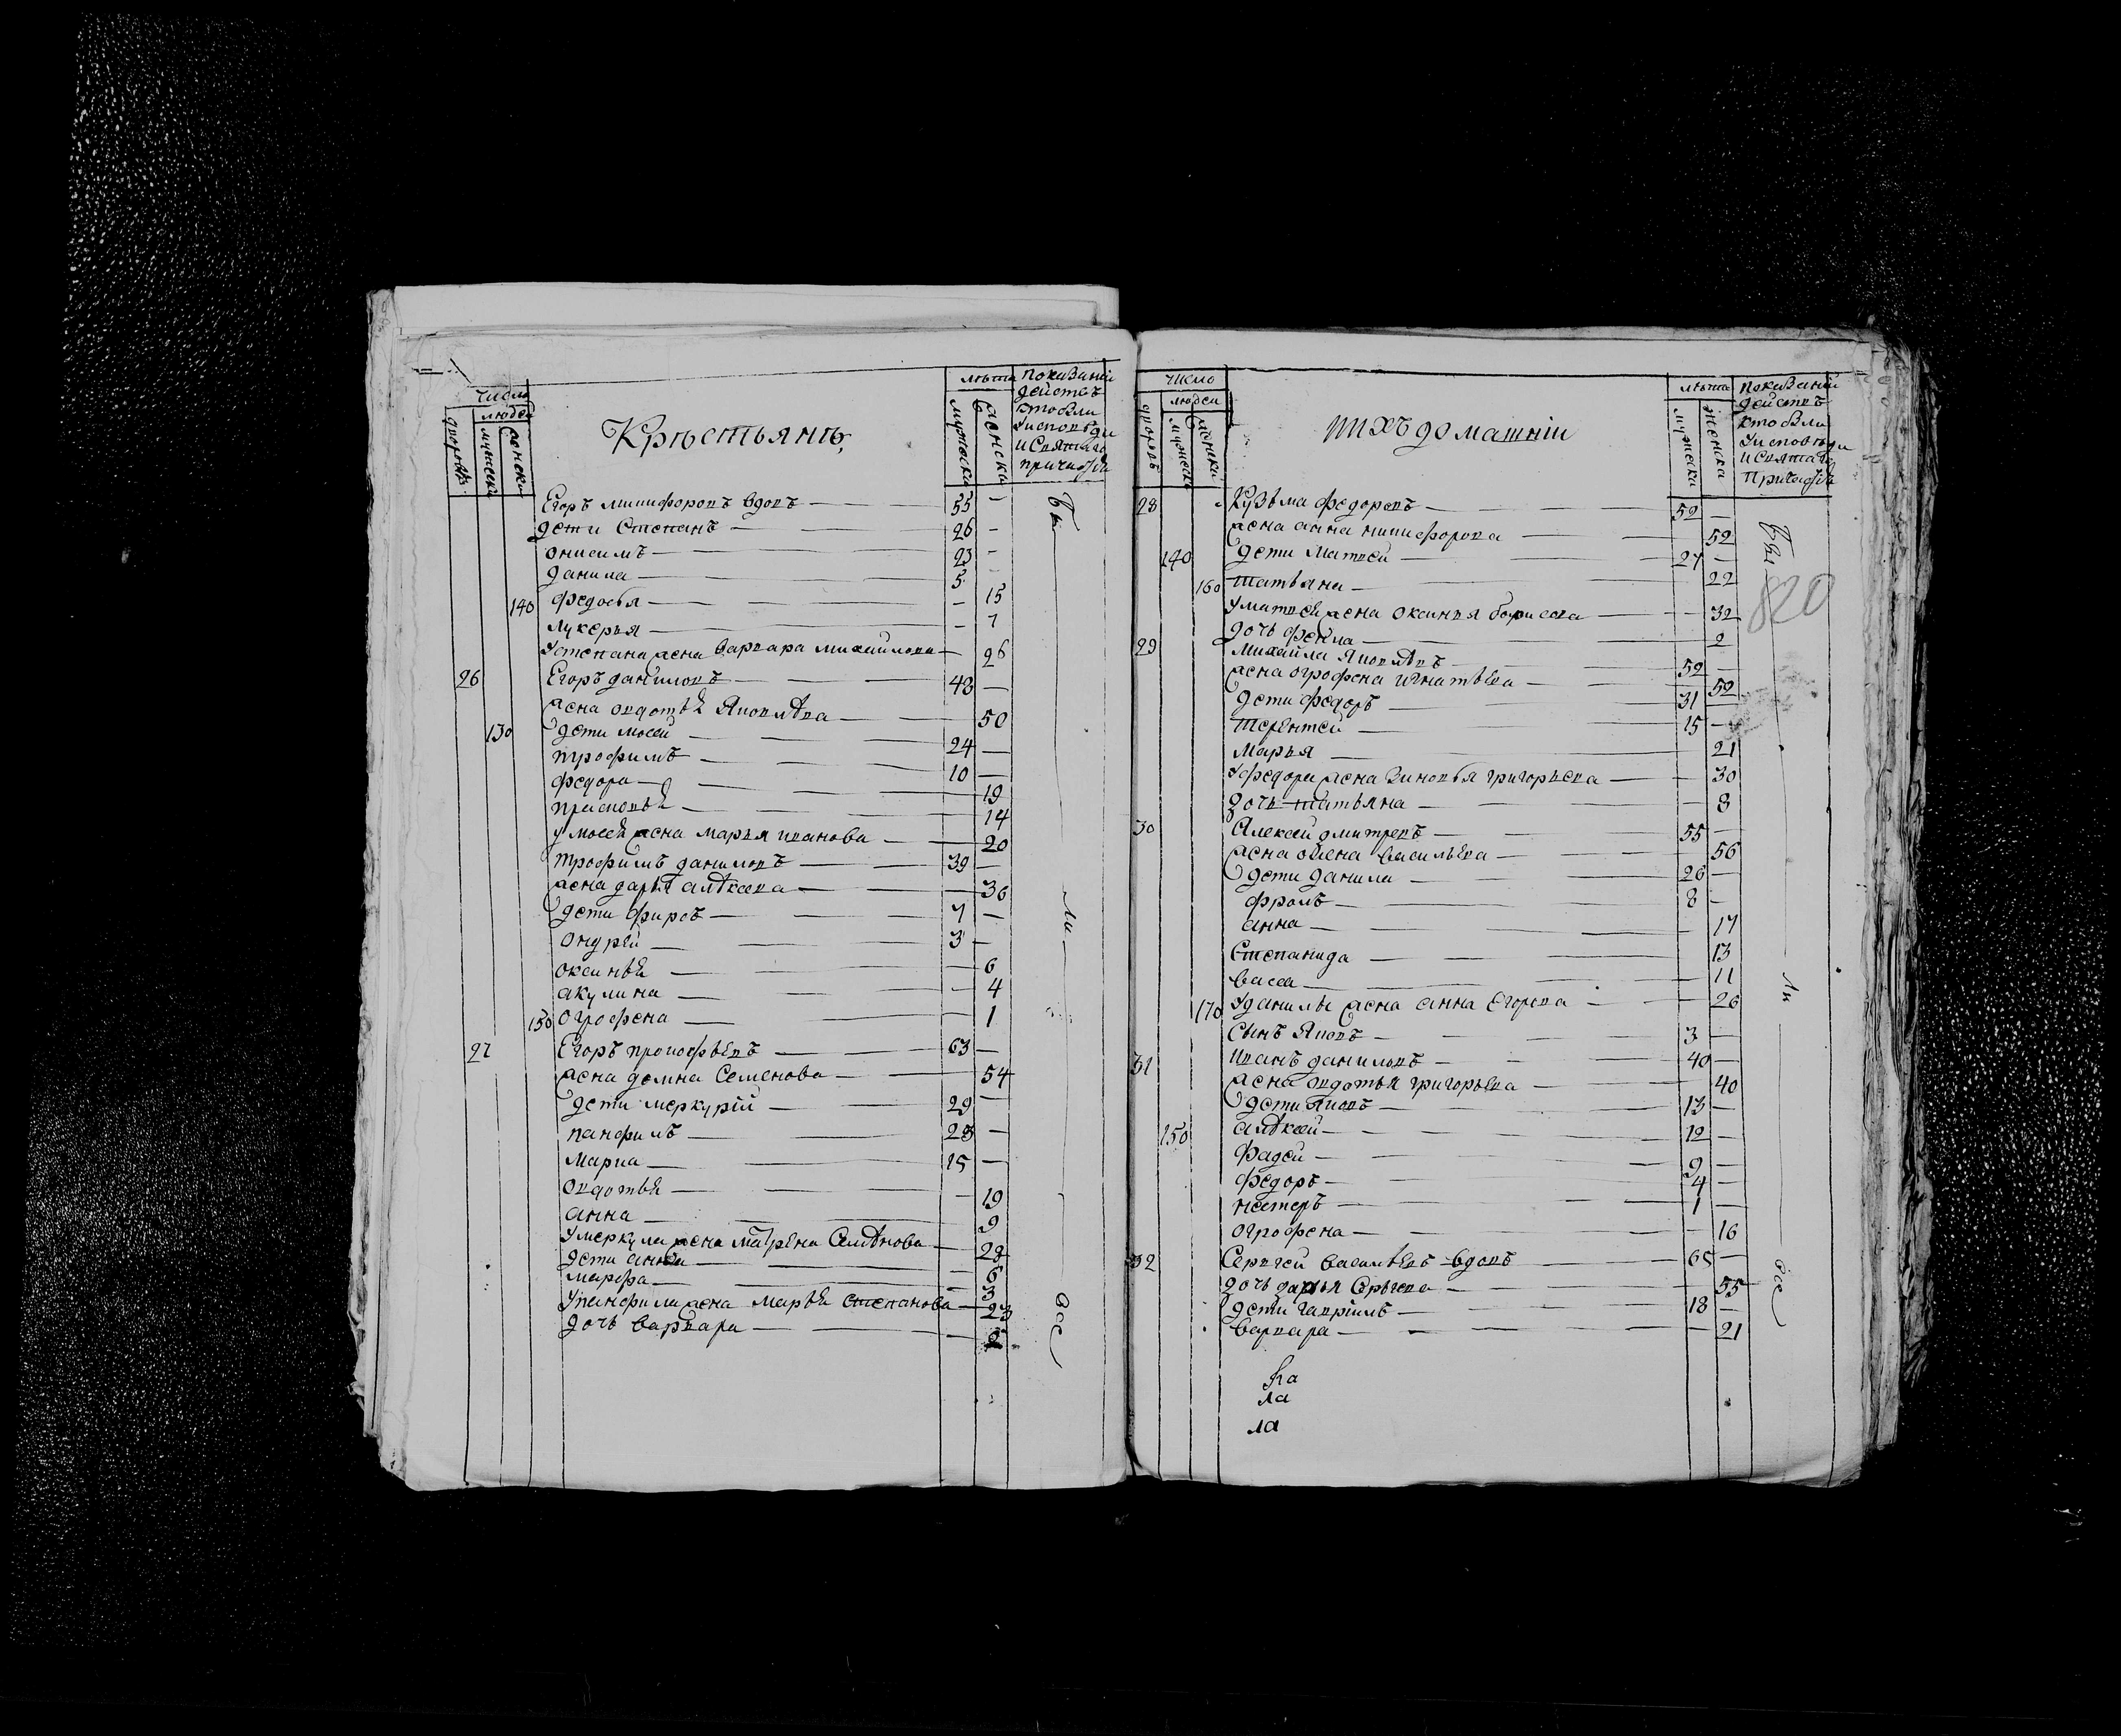 число
людей
дворовъ
мужеска
женска
Кръстьянъ,
мужеска
женска
лѣта
показаніи
действъ
кто были
Уисповѣди
и Святаго
причастія
Егоръ никифоровъ вдовъ — 55 —
дети Степанъ — 26 —
онисимъ — 23 —
данила — 5 —
140 федосья — 15
лукерья — 7
Устепана жена варвара михайлова — 26
26 Егоръ даниловъ — 48 —
жена овдотья Яковлѣва — 50
130 дети мосей — 24 —
трофимъ — 10 —
федора — 19
прасковья — 14
у мосея жена марья иванова — 20
трофимъ даниловъ — 39 —
жена дарья алѣксеева — 36
дети фирсъ — 7 —
ондрей — 3 —
оксинья — 6
акулина — 4
150 Огрофена — 1
27 Егоръ прокофьевъ — 63 —
жена домна Семенова — 54
дети меркурій — 29 —
панфилъ — 23 —
Марка — 15 —
овдотья — 19
анна — 9
Умеркула жена матрена Семѣнова — 28
дети анна — 6
марфа — 3
Упанфила жена марья степанова — 23
дочь варвара — 2
бы
ли
все
число
людей
дворовъ
мужеска
женска
ииxъ домашніи
мужеска
женска
лѣта
показаніи
действъ
кто были
Уисповѣди
и Святаго
Причастія
820
28 Кузьма федоровъ — 52 —
жена анна никифорова — 52
140 дети Матвей — 27 —
160 татьяна — 22
Уматвея жена оксинья борисова — 32
дочь фекла — 2
29 Михайла Яковлѣвъ — 52 —
жена огрофена игнатьева — 52
дети федоръ — 31 —
терентей — 15 —
Марья — 21
Уфедора жена Зиновья григорьева — 30
дочь татьяна — 8
30 Алексей дмитревъ — 55 —
жена олена васильева — 56
дети данила — 26 —
фролъ — 8 —
анна — 17
Степанида — 13
васса — 11
170 Уданилы жена анна Егорова — 26
Сынъ Яковъ — 3 —
31 Иванъ даниловъ — 40 —
жена овдотья григорьева — 40
дети Яковъ — 13 —
150 алѣксей — 12 —
Фадей — 9 —
федоръ — 4 —
нестеръ — 1 —
огрофена — 16
32 Сергей васильевъ вдовъ — 65 —
дочь дарья Сергеева — 35
дети гаврилъ — 18 —
варвара — 21
бы
ли
все
ла
ла